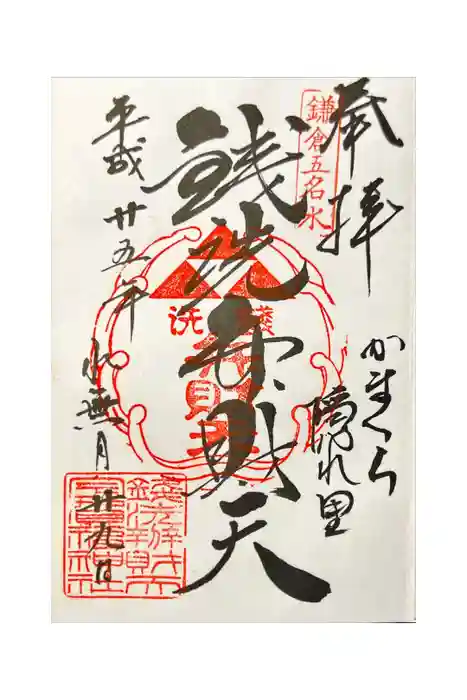 奉拝
鎌倉五名水
かまくら
隠れ里
銭洗弁財天
銭洗
弁財天
平成廿五年
水無月廿九日